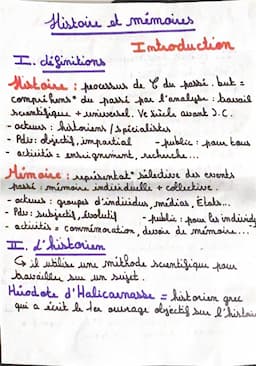 Histoire et mémoires
Introduction
I. définitions
Histoire : processus de C° du passé. but =
compréhens° du passé par l'analyse : travail
scientifique + universel. Ve siècle avant J.C.
- acteurs : historiens / spécialistes
- Pdv : objectif, impartial - public : pour tous
- activités = enseignement, recherche...
Mémoire : représentat° sélective des events
passé : mémoire individuelle + collective.
- acteurs : groupes d'individus, médias, Etats...
- Pdv : subjectif, évolutif - public : pour les individ
- activités = commémoration, devoir de mémoire...
II. l'historien
↳ il utilise une méthode scientifique pour
travailler sur un sujet.
Hérodote d'Halicarnasse = historien grec
qui a écrit le 1er ouvrage objectif sur l'histoire